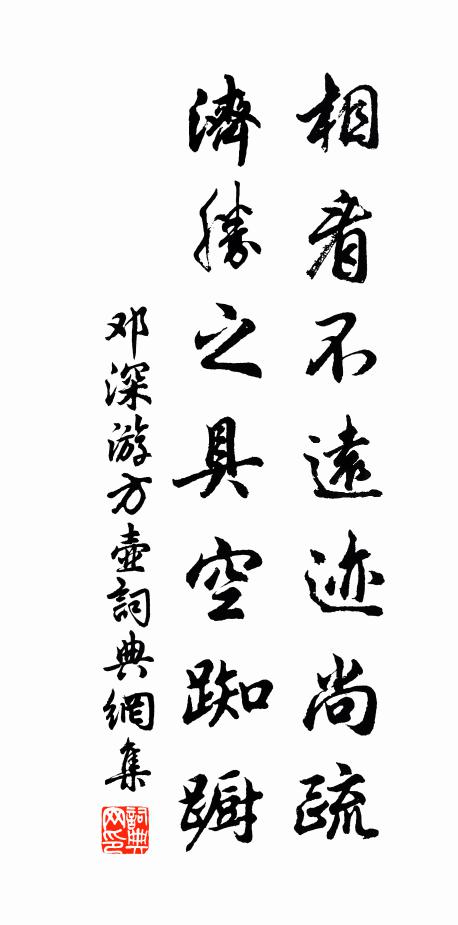 相看不遠迹尚疏
濟勝之具空踟蹰
邓深游方壺詞典網集
詞典网印